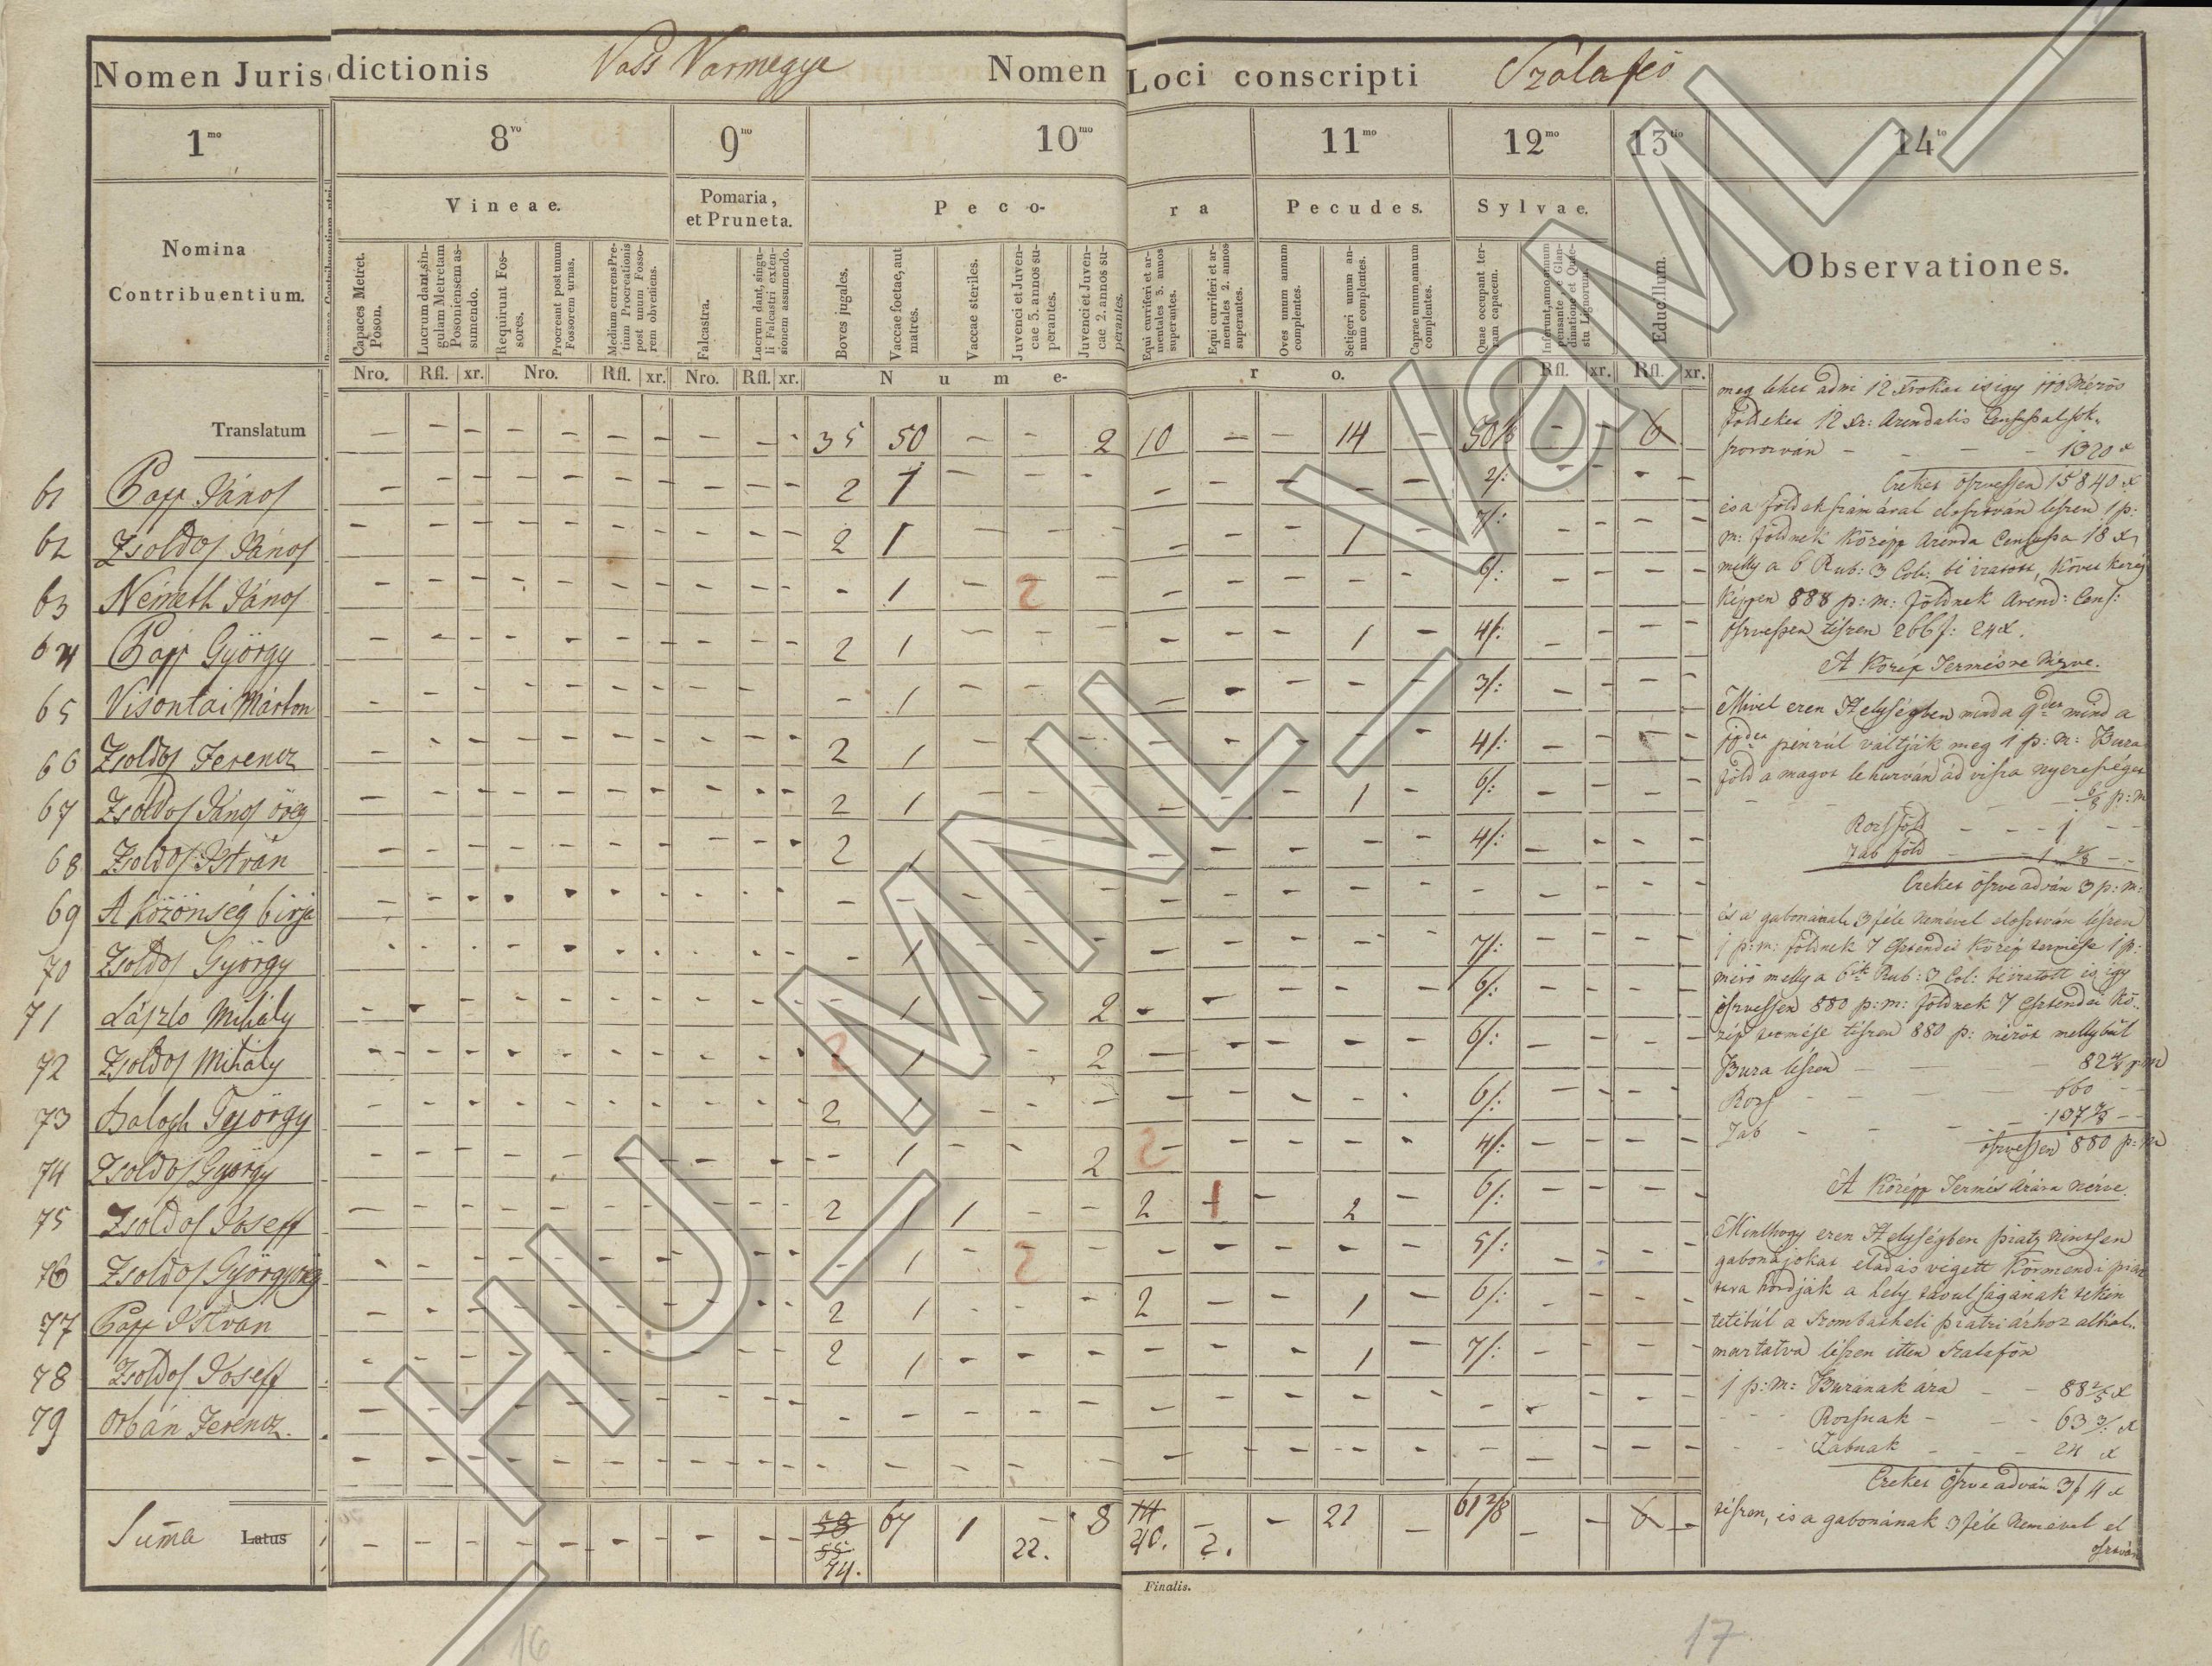 Nomen Jurisdictionis Vass Varmegye Nomen Loci conscripti Szalafeő
1mo 8vo 9no 10mo 11mo 12mo 13tio 14to
Nomina Contribuentium.
Vineae.
Pomaria, et Pruneta.
Peco-ra
Pecudes.
Sylvae.
Educillum.
Observationes.
Capaces Metret. Poson.
Lucrum dant, singulam Metretam Posoniensem assumendo.
Requirunt Fossores.
Procreant post unum Fossorem urnas.
Medium currens Pretium Procreationis post unum Fossorem obveniens.
Falcastra.
Lucrum dant, singuli Falcastri extensionem assumendo.
Boves jugales.
Vaccae foetae, aut matres.
Vaccae steriles.
Juvenci et Juvencae 3. annos superantes.
Juvenci et Juvencae 2. annos superantes.
Equi curriferi et armentales 3. annos superantes.
Equi curriferi et armentales 2. annos superantes.
Oves unum annum complentes.
Setigeri unum annum complentes.
Caprae unum annum complentes.
Quae occupant terram capacem.
Nro. Rfl. xr. Nro. Rfl. xr. Nro. Rfl. xr. Nume-ro. Rfl. xr. Rfl. xr.
Translatum 35 50 – – 2 10 – – 14 – – – 6
61 Papp János 2 1 2/:
62 Zsoldos János 2 1 1 7/:
63 Németh János – 1 – 2 6/:
64 Papp György 2 1 1 4/:
65 Visontai Márton – 1 3/:
66 Zsoldos Ferencz 2 1 4/:
67 Zsoldos János öreg 2 1 1 6/:
68 Zsoldos István 2 1 4/:
69 A Közönség birja
70 Zsoldos György – 1 7/:
71 László Mihály – 1 2 6/:
72 Zsoldos Mihály 2 1 2 6/:
73 Balogh György 2 1 6/:
74 Zsoldos György – 1 2 2 4/:
75 Zsoldos Joseff 2 1 1 2 1 2 6/:
76 Zsoldos György öreg – 1 2 5/:
77 Papp Istvan 2 1 2 1 6/:
78 Zsoldos Joseff 2 1 1 7/:
79 Orbán Ferencz.
Suma Latus 58 55 74. 67 1 22. 8 14 40. 2. 6
meg lehet adni 12
földeket 12 xr: Arendalis
1320 x
Ezeket öszvessen 15840 x
és a földek számával eloszván leszen 1 p:
m: földnek Közép Arenda Censussa 18 x,
melly a 6 Rub: 3 Col: bé iratott, Követ kező
képpen 888 p: m: földnek Arend: Cens:
öszvessen tészen 266 f: 24 x.
A Közép Termésre Nézve.
Mivel ezen Helységben mind a 9det mind a
10det pénzűl váltják meg 1 p: m: Buza
föld a magot le huzván ád vissza nyereséget
6/8 p: m
Rozs föld – – 1 – –
Zab föld – – 1 2/8 – –
Ezeket öszve adván 3 p: m:
és a gabonának 3 féle nemével eloszván lészen
1 p: m: földnek 7 esztendei Közép termése 1 p:
mérő melly a 6ik Rub: 3 Col: bé iratott és így
öszvessen 880 p: m: földnek 7 Esztendei Kö-
zép termése tészen 880 p: mérőt mellyből
Buza lészen – – 82 4/8 p: m
Rozs – – 660 – –
Zab – – 137 4/8 – –
öszvessen 880 p: m
A Közép Termés Árára nézve.
Minthogy ezen Helységben piatz nintsen
gabonájokat eladás végett Körmendi piatz
ra hordják a hely távulságának tekin
tetéből a Szombatheli piatzi árhoz alkal-
maztatva lészen itten Szalafőn
1 p: m: Buzának ára – – 88 2/3 x
Rozsnak – – 63 x
Zabnak – – 24 x
Ezeket öszve adván 3 f 4 x
tészen, és a gabonának 3 féle nemével el
oszván
Finalis.
16
17
HU_MNL_VaML_I